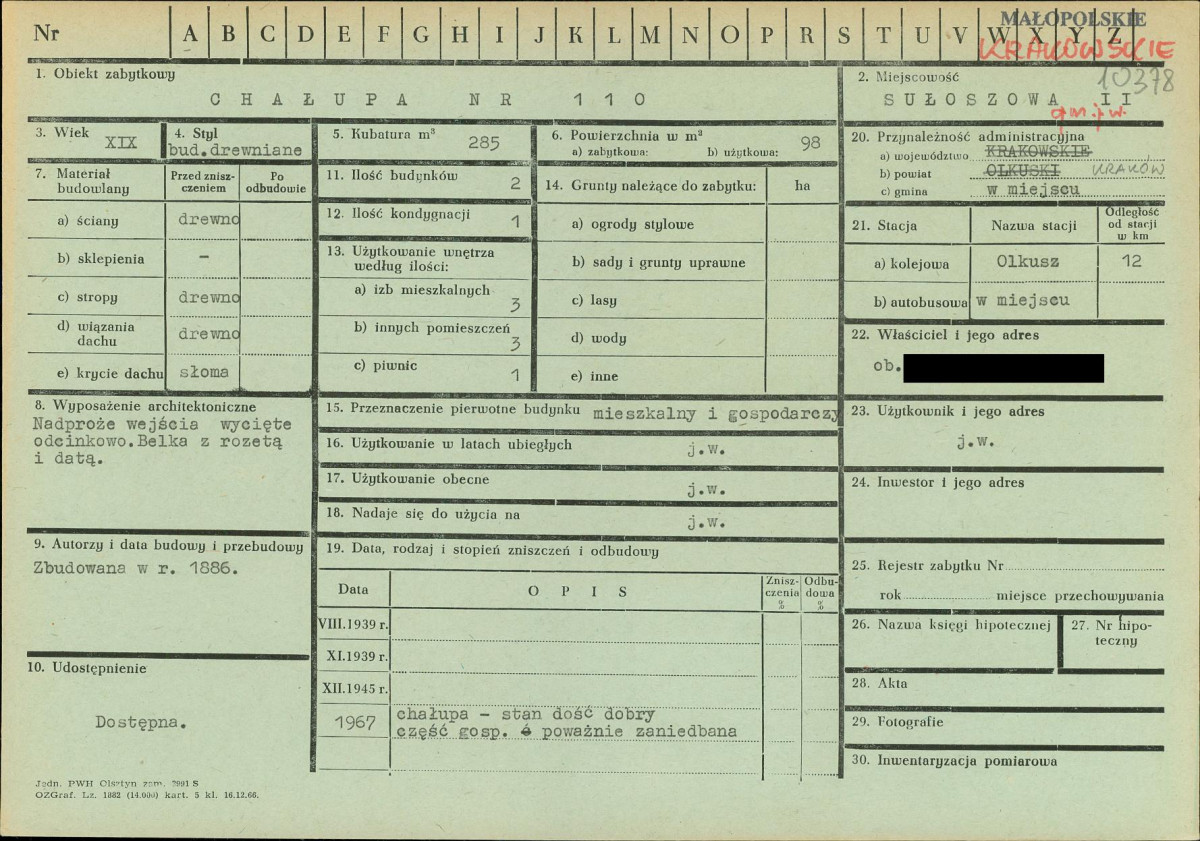 Nr A B C D E F G H I J K L M N O P R S T U V W X Y Z
MAŁOPOLSKIE
KRAKOWSKIE
10378
1. Obiekt zabytkowy
CHAŁUPA NR 110
2. Miejscowość
SUŁOSZOWA II
gm. j.w.
3. Wiek XIX
4. Styl
bud.drewniane
5. Kubatura m³ 285
6. Powierzchnia w m²
a) zabytkowa: b) użytkowa: 98
7. Materiał budowlany
Przed zniszczeniem
Po odbudowie
a) ściany drewno
b) sklepienia –
c) stropy drewno
d) wiązania dachu drewno
e) krycie dachu słoma
8. Wyposażenie architektoniczne
Nadproże wejścia wycięte
odcinkowo.Belka z rozetą
i datą.
9. Autorzy i data budowy i przebudowy
Zbudowana w r. 1886.
10. Udostępnienie
Dostępna.
11. Ilość budynków 2
12. Ilość kondygnacji 1
13. Użytkowanie wnętrza
według ilości:
a) izb mieszkalnych 3
b) innych pomieszczeń 3
c) piwnic 1
14. Grunty należące do zabytku: ha
a) ogrody stylowe
b) sady i grunty uprawne
c) lasy
d) wody
e) inne
15. Przeznaczenie pierwotne budynku mieszkalny i gospodarczy
16. Użytkowanie w latach ubiegłych j.w.
17. Użytkowanie obecne j.w.
18. Nadaje się do użycia na j.w.
19. Data, rodzaj i stopień zniszczeń i odbudowy
Data OPIS Znisz-czenia % Odbu-dowa %
VIII.1939 r.
XI.1939 r.
XII.1945 r.
1967 chałupa – stan dość dobry
część gosp. poważnie zaniedbana
20. Przynależność administracyjna
a) województwo KRAKOWSKIE
b) powiat OLKUSKI KRAKÓW
c) gmina w miejscu
21. Stacja Nazwa stacji Odległość od stacji w km
a) kolejowa Olkusz 12
b) autobusowa w miejscu
22. Właściciel i jego adres
ob.
23. Użytkownik i jego adres
j.w.
24. Inwestor i jego adres
25. Rejestr zabytku Nr
rok miejsce przechowywania
26. Nazwa księgi hipotecznej
27. Nr hipo-
teczny
28. Akta
29. Fotografie
30. Inwentaryzacja pomiarowa
Jedn. PWH Olsztyn zam. 2991 S
OZGraf. Lz. 1882 (14.000) kart. 5 kl. 16.12.66.